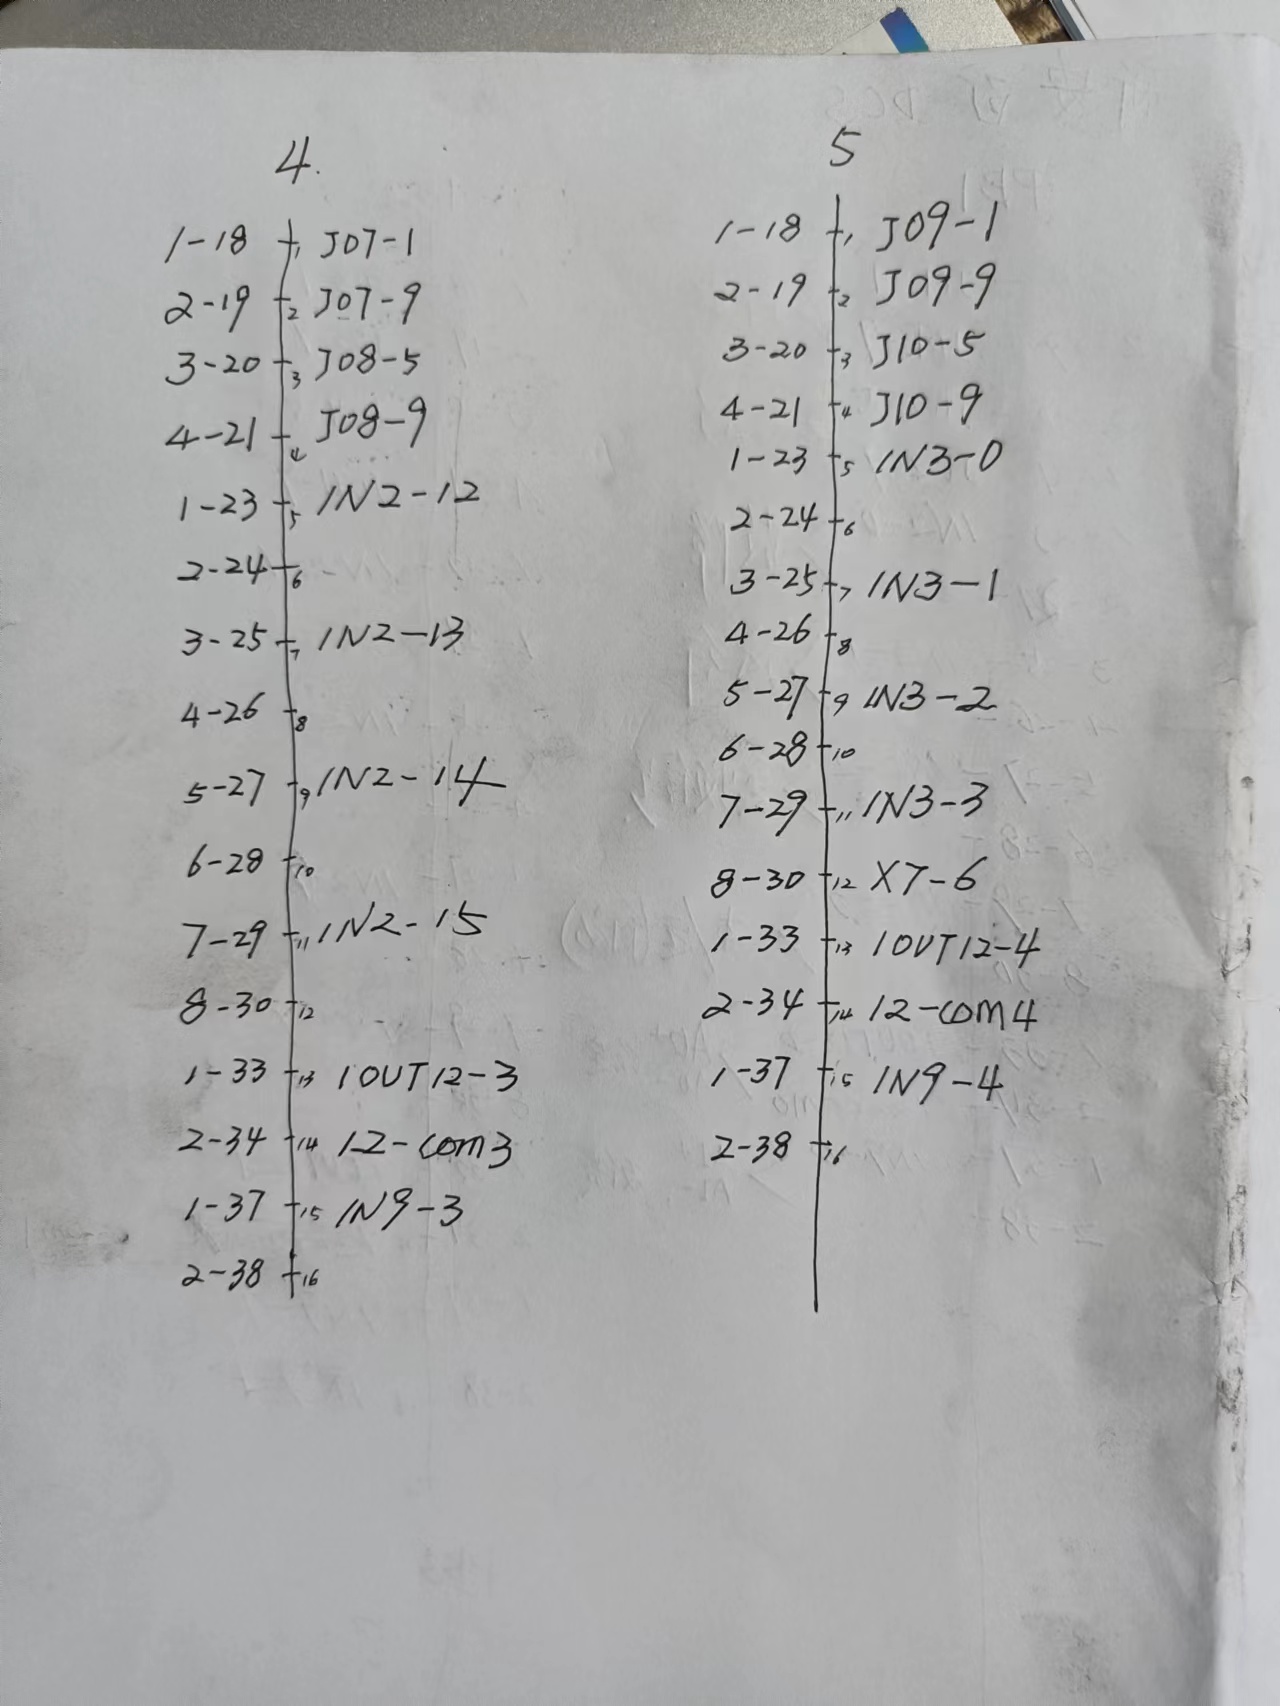 4.
1-18 1 J07-1
2-19 2 J07-9
3-20 3 J08-5
4-21 4 J08-9
1-23 5 IN2-12
2-24 6
3-25 7 IN2-13
4-26 8
5-27 9 IN2-14
6-28 10
7-29 11 IN2-15
8-30 12
1-33 13 IOUT12-3
2-34 14 12-com3
1-37 15 IN9-3
2-38 16
5
1-18 1 J09-1
2-19 2 J09-9
3-20 3 J10-5
4-21 4 J10-9
1-23 5 IN3-0
2-24 6
3-25 7 IN3-1
4-26 8
5-27 9 IN3-2
6-28 10
7-29 11 IN3-3
8-30 12 X7-6
1-33 13 IOUT12-4
2-34 14 12-com4
1-37 15 IN9-4
2-38 16